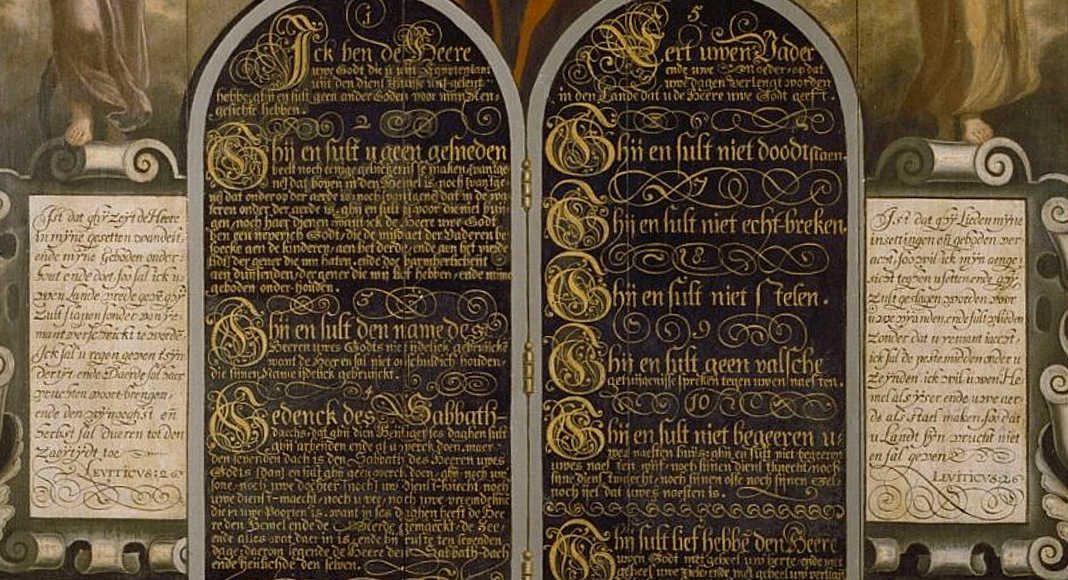 1
Ick ben de Heere
uwe Godt die u uut Egyptenlant
uut den diensthuise
hebbe, ghy en sult geen ander Goden voor mijn aen-
gesichte hebben.
2
Ghij en sult u geen gesneden
beelt noch eenige gelijckenisse maken, van tge-
ne dat boven in den Hemel is, noch van tgene
dat onder op der aerde is, noch van tgene dat in de wa-
teren onder der aerde is, ghij en sult u voor die niet
noch haer dienen, want ick de Heere uwe Godt
ben een
kinderen, aen het derde, ende aen het vierde
lidt der gener die mij haten, ende doe barmherticheit
aen duijsenden, der gener die mij lief hebben, ende mijne
geboden onder-houden.
3
Ghij en sult den name des
Heeren uwes Godts niet ijdelick gebruicken
want de Heer en sal niet onschuldich houden,
die sijnen Name ijdelick gebruickt.
4
Gedenck des Sabbath-
daechs, dat ghij dien Heiliget, ses daghen sult
ghij arbeiden ende al u werck doen, maer
den sevenden dach is den Sabbath des Heeren uwes
Godts, dan en sult ghij geen werck doen, ghij noch uwe
sone, noch uwe dochter, noch uw dienst-knecht, noch
uwe dienst-maecht, noch u vee, noch uwe vreemdeline
die in uwe Poorten is, want in ses daghen heeft de Hee-
re den Hemel ende de Aerde gemaeckt, de Zee
ende alles wat daer in is, ende hij ruste ten sevenden
dage, daerom segende de Heere den Sabbath-dach
ende heilichde den selven.
5
Eert uwen Vader
ende uwe Moeder, op dat
uwe dagen verlengt worden
in den Lande dat u de Heere uwe Godt geeft.
6
Ghij en sult niet doodtslaen.
7
Ghij en sult niet echt-breken.
8
Ghij en sult niet stelen.
9
Ghij en sult geen valsche
getuijgenisse spreken tegen uwen naesten.
10
Ghij en sult niet begeeren u-
wes naesten huijs, ghij en sult niet begeeren
uwes naesten wijf, noch sijnen dienstknecht, noch
sijne dienstmaecht, noch sijnen osse noch sijnen esel,
noch iet dat uwes naesten is.
Ghij sult lief hebbē den Heere
uwen Godt met geheel uw herte, ende met
geheel uwe ziele, ende met geheel uw verstant
Ist dat ghÿ Zeÿt de Heere
in mÿne gesetten wandelt,
ende mÿne Geboden onder-
hout ende doet, soo sal ick u
uwen Lande vrede geven ghÿ
Zult slapen sonder
mant verschrickt u werde.
Ick sal u regen geven tsÿn-
der tÿt, ende Daerde sal haer
vruchten voort-brengen,
ende den wÿnoeghst eñ
Herbst sal dueren tot den
Zaeÿtÿdt toe
LEVITICVS: 26
Ist dat ghÿ Lieden mÿne
insettingen eñ geboden ver-
acht, soo wil ick mÿn aenge-
sicht tegen u setten ende ghÿ
Zult geslagen worden voor
uwe vÿanden, ende sult vlieden
Zonder dat u yemant iaecht,
ick sal de peste midden onder u
Zeÿnden ick wil uwen He-
mel als ÿser ende uwe aer-
de als stael maken, soo dat
u Landt sÿn vrucht niet
en sal geven
LEVITICVS: 26